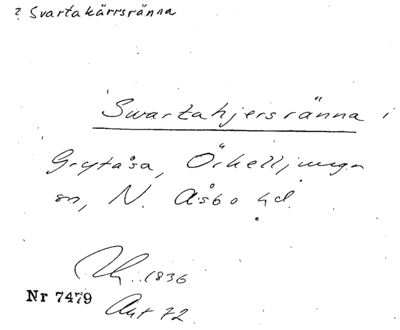 ? Svartakärrsränna
Swartahjersränna i
Grytåsa, Örkelljunga
sn, N. Åsbo hd.
1836
Nr 7479
Akt 72